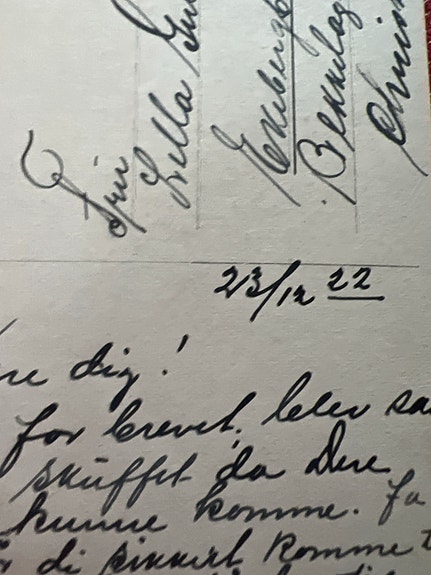 Frn
Lella
Ekeberg
Bekkelag
Chris
23/12 22
re dig!
for brevet, blev sa
skuffet da Dere
kunne komme. Ja
di sikkert komme